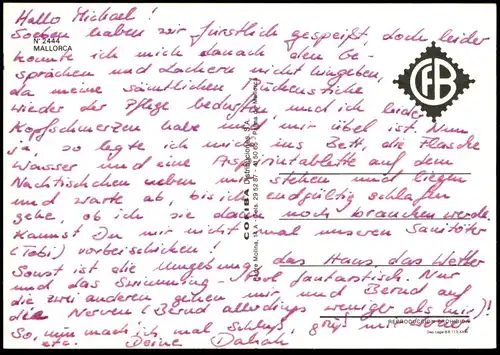 Hallo Michael!
N° 2444
MALLORCA
Soeben haben wir fürstlich gespeißt, doch leider
konnte ich mich danach den Ge-
sprächen und Lachern nicht hingeben,
da meine sämtlichen Mückenstiche
wieder der Pflege bedurften und ich leider
Kopfschmerzen habe und mir übel ist. Nun
ja, so legte ich mich ins Bett, die Flasche
Wasser und eine Aspirintablette auf dem
Nachtischchen neben mir stehen und liegen
und warte ab, bis ich endgültig schlafen
gehe, ob ich sie da noch brauchen werde.
Kannst Du mir nicht mal unseren Sanitöter
(Tobi) vorbeischicken!
Sonst ist die Umgebung, das Haus, das Wetter
und das Swimming-Pool fantastisch. Nur
die zwei anderen gehen mir, und Bernd auf
die Nerven (Bernd allerdings weniger als mir)!
So, nun mach ich mal Schluß, grüß mir
etc. Deine
CFB
COFIBA Distribuciones, S.A.
REPRODUCCION PROHIBIDA